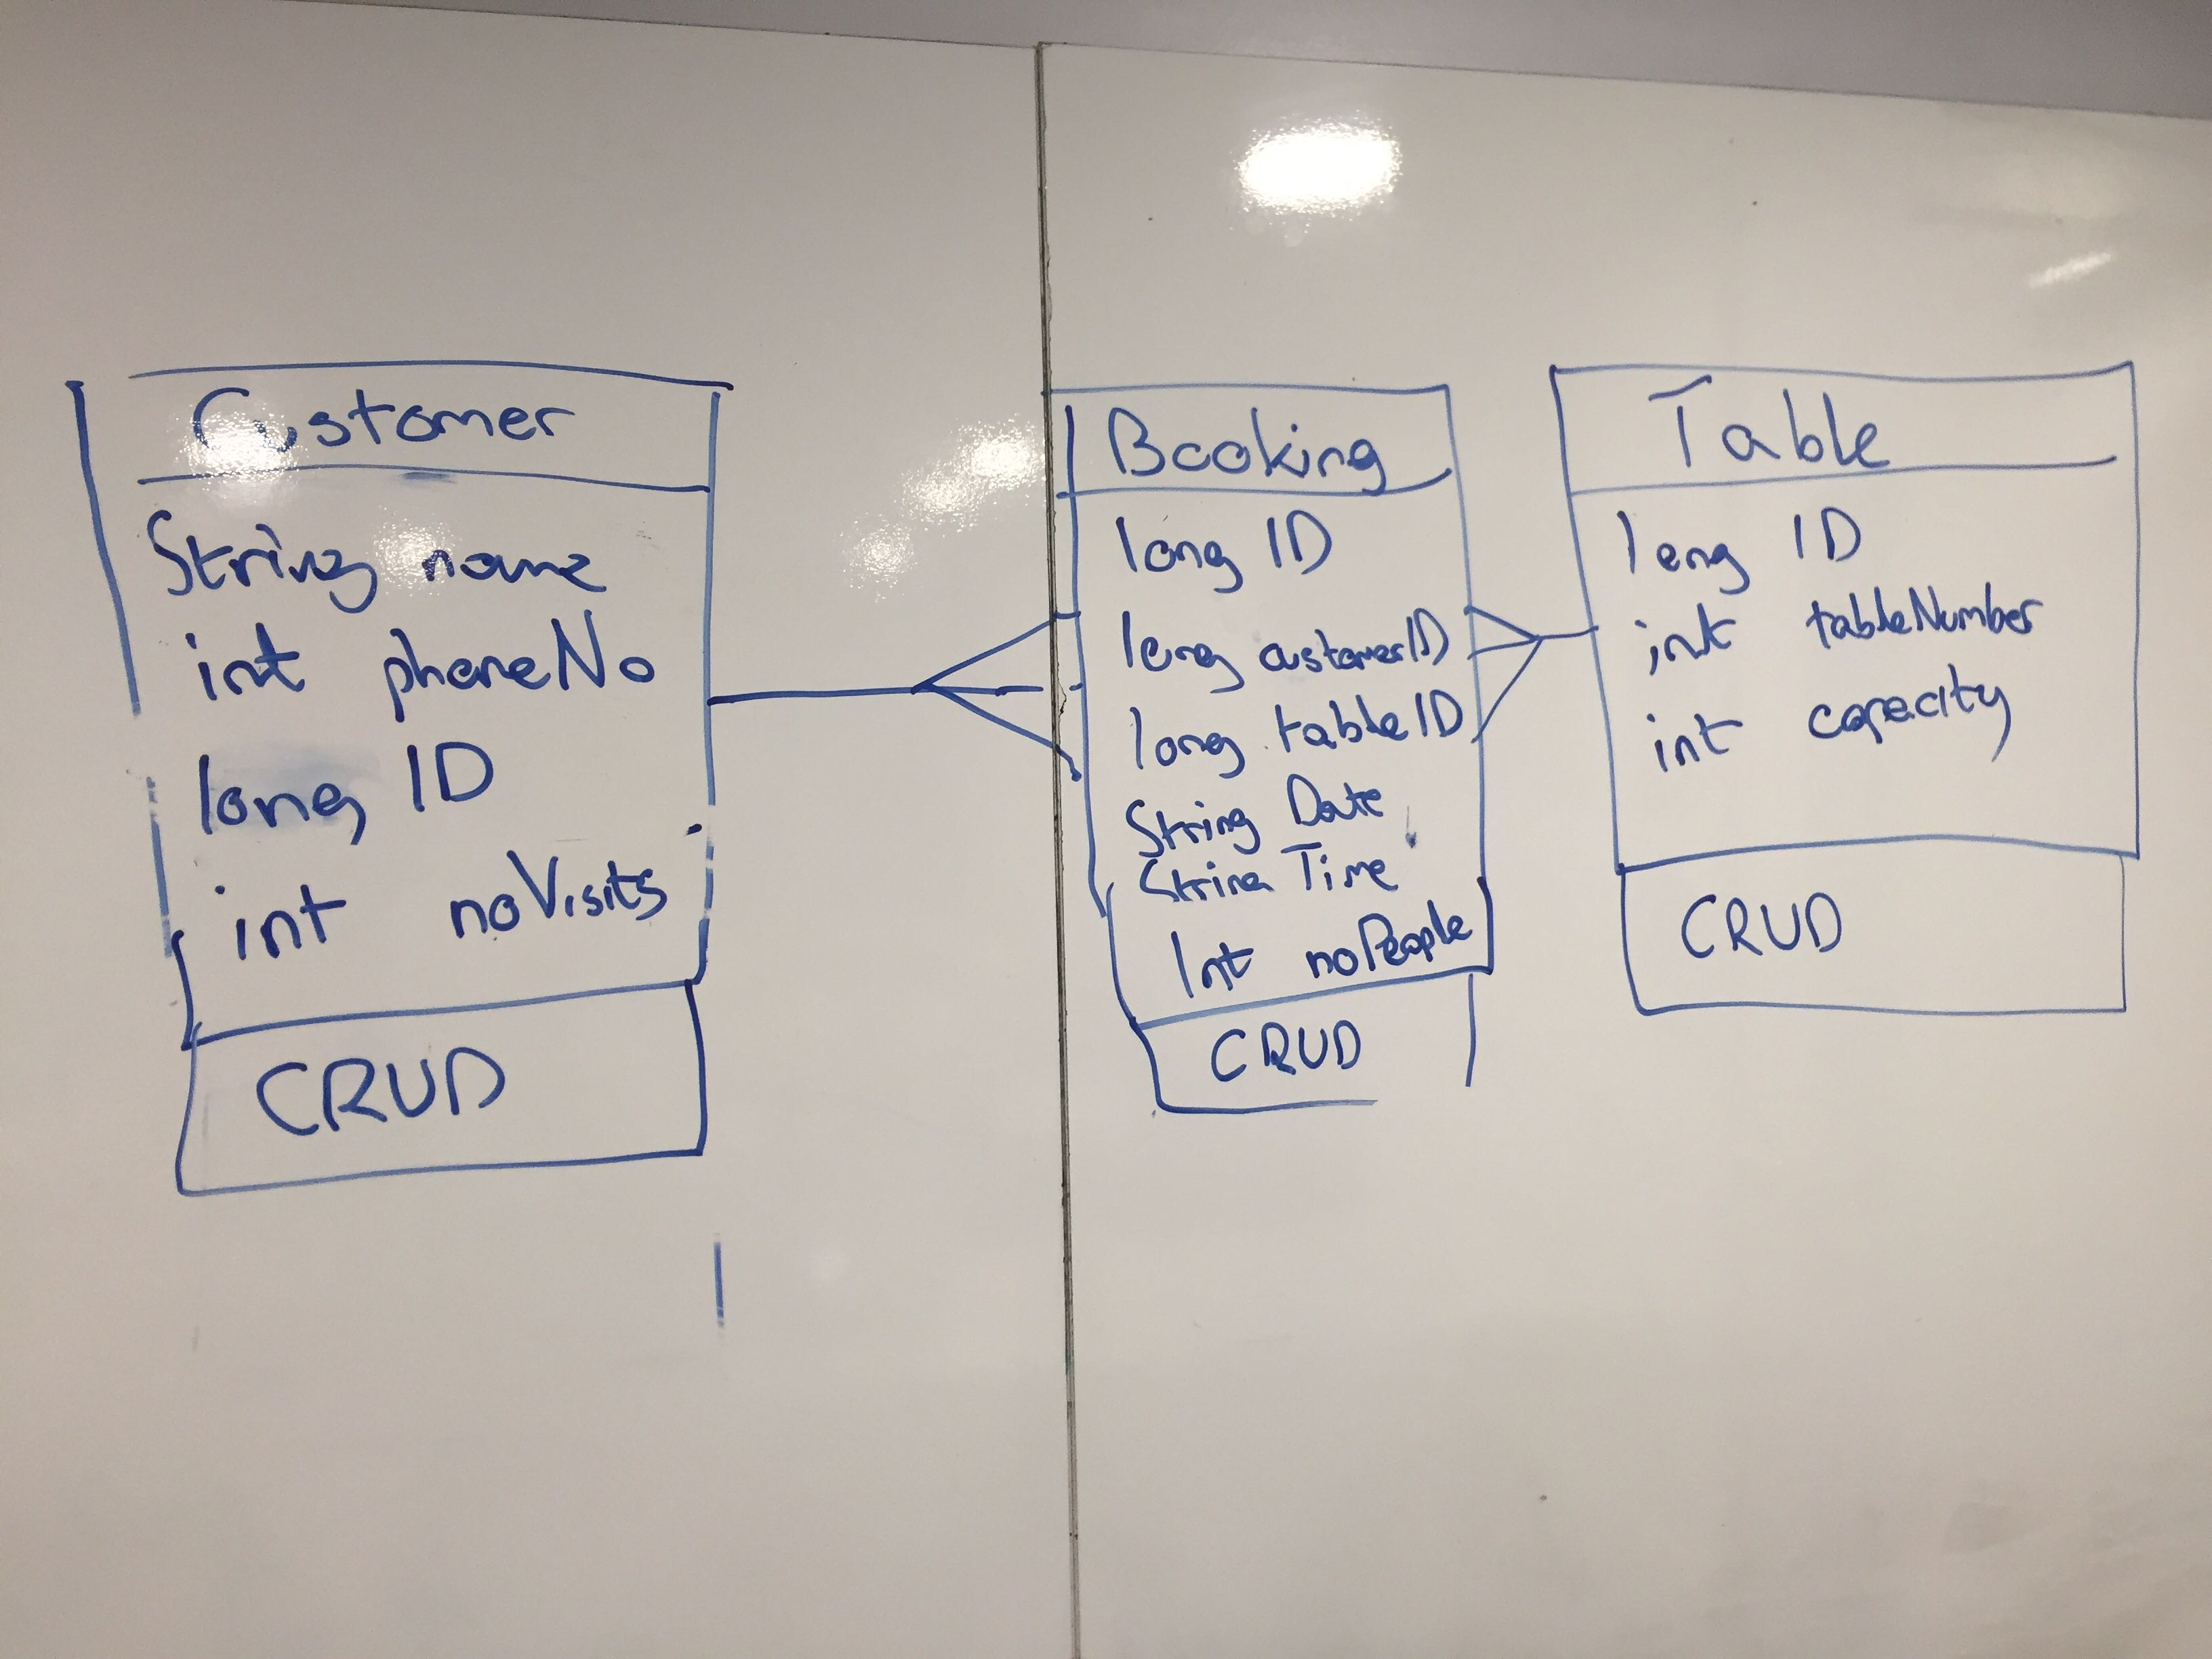 Customer
String name
int phoneNo
long ID
int noVisits
CRUD
Booking
long ID
long customerID
long tableID
String Date
String Time
Int noPeople
CRUD
Table
long ID
int tableNumber
int capacity
CRUD